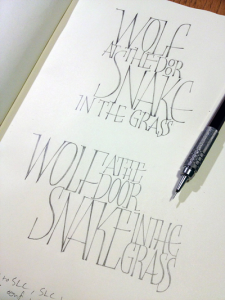 WOLF
AT THE DOOR
SNAKE
IN THE GRASS
WOLF AT THE
DOOR
SNAKE IN THE
GRASS